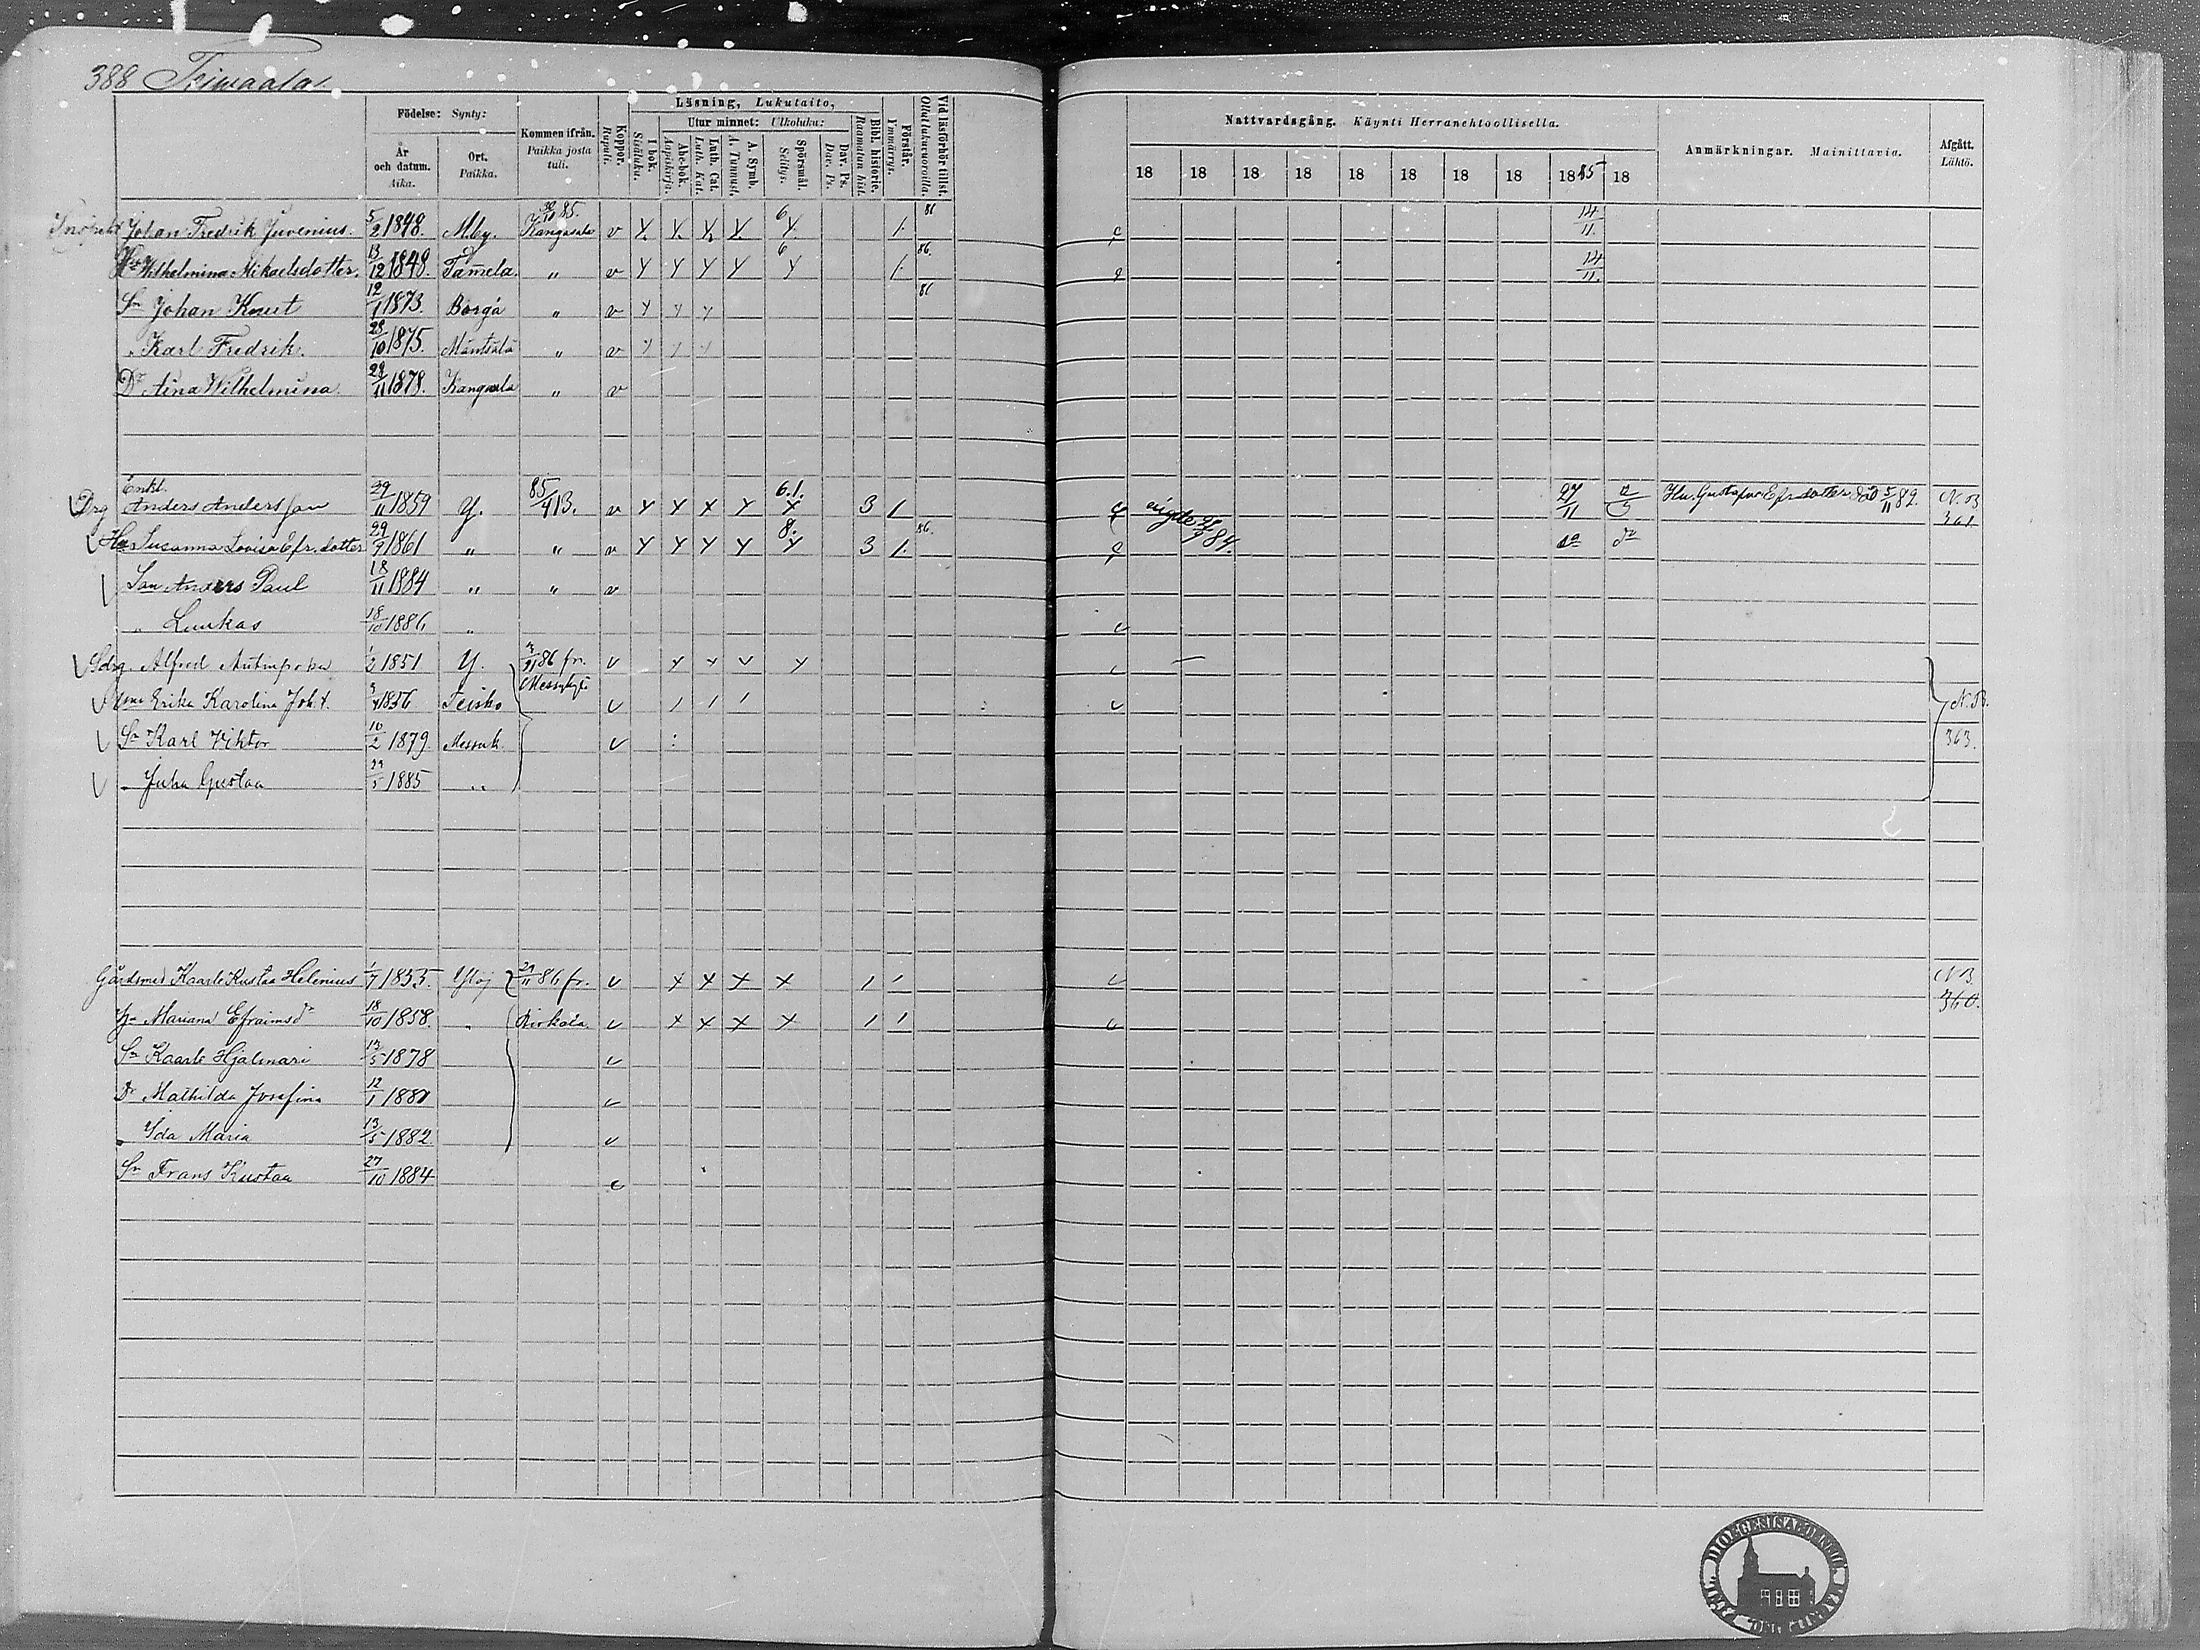 388 Teiwaala.
Födelse: Synty:
Kommen ifrån. Paikka josta tuli.
Koppor. Rupuli.
Läsning, Lukutaito,
I bok. Sisäluku.
Utur minnet: Ulkoluku:
Abc-bok. Aapiskirja.
Luth. Cat. Luth. Kat.
A. Symb. A. Tunnust.
Spörsmål. Selitys.
Dav. Ps. Dav. Ps.
Bibl. historie. Raamatun hist.
Förstår. Ymmärrys.
Vid läsförhör tillst. Ollut lukuvuoroilla.
År och datum. Aika.
Ort. Paikka.
Nattvardsgång. Käynti Herranehtoollisella.
Anmärkningar. Mainittavia.
Afgått. Lähtö.
18 18 18 18 18 18 18 18 1885 18
Johan Fredrik Juvenius. 5/2 1848. Mby. 30/10 85. Kangasala v 6 1. 86 14/11.
Hu Wilhelmina Mikaelsdotter. 13/12 1848. Tammela. " v 6 1. 86. 14/11.
Sn Johan Knut 12/1 1873. Borgå " v 86
" Karl Fredrik. 28/10 1875. Mäntsälä " v
Dr Aina Wilhelmina. 28/11 1878. Kangasala " v
Enkl.
Drg Anders Andersson 29/11 1859 Y. 85/413. v 6.1. 3 1 27/11 Hu. Gustafva Efr.dotter död 5/11 82. N.B 361
Hu Susanna Lovisa Efr.dotter 29/9 1861 " " v 8. 3 1. 86. vigde 84.
Son Anders Paul 18/11 1884 " " v
" Luukas 18/10 1886 "
Sdrg. Alfred Antinpoika 1/2 1851 Y. 86 fr. Messukylä v
Erika Karolina Joh.t. 1856 Teisko v N.B.
Sn Karl Viktor 10/2 1879. Messuk. v 363.
" Juha Gustaa 1885 "
Gårdsmed Kaarle Kustaa Helenius 1/7 1855. Yloj 29/11 86 fr. v 1 1 N.B. 360.
Hu Mariana Efraimsdr 18/10 1858. " Birkala v 1 1
Sn Kaarle Hjalmari 13/5 1878 v
Dr Mathilda Josefina 12/1 1880 v
" Ida Maria 13/5 1882 v
Sn Frans Kustaa 27/10 1884 v